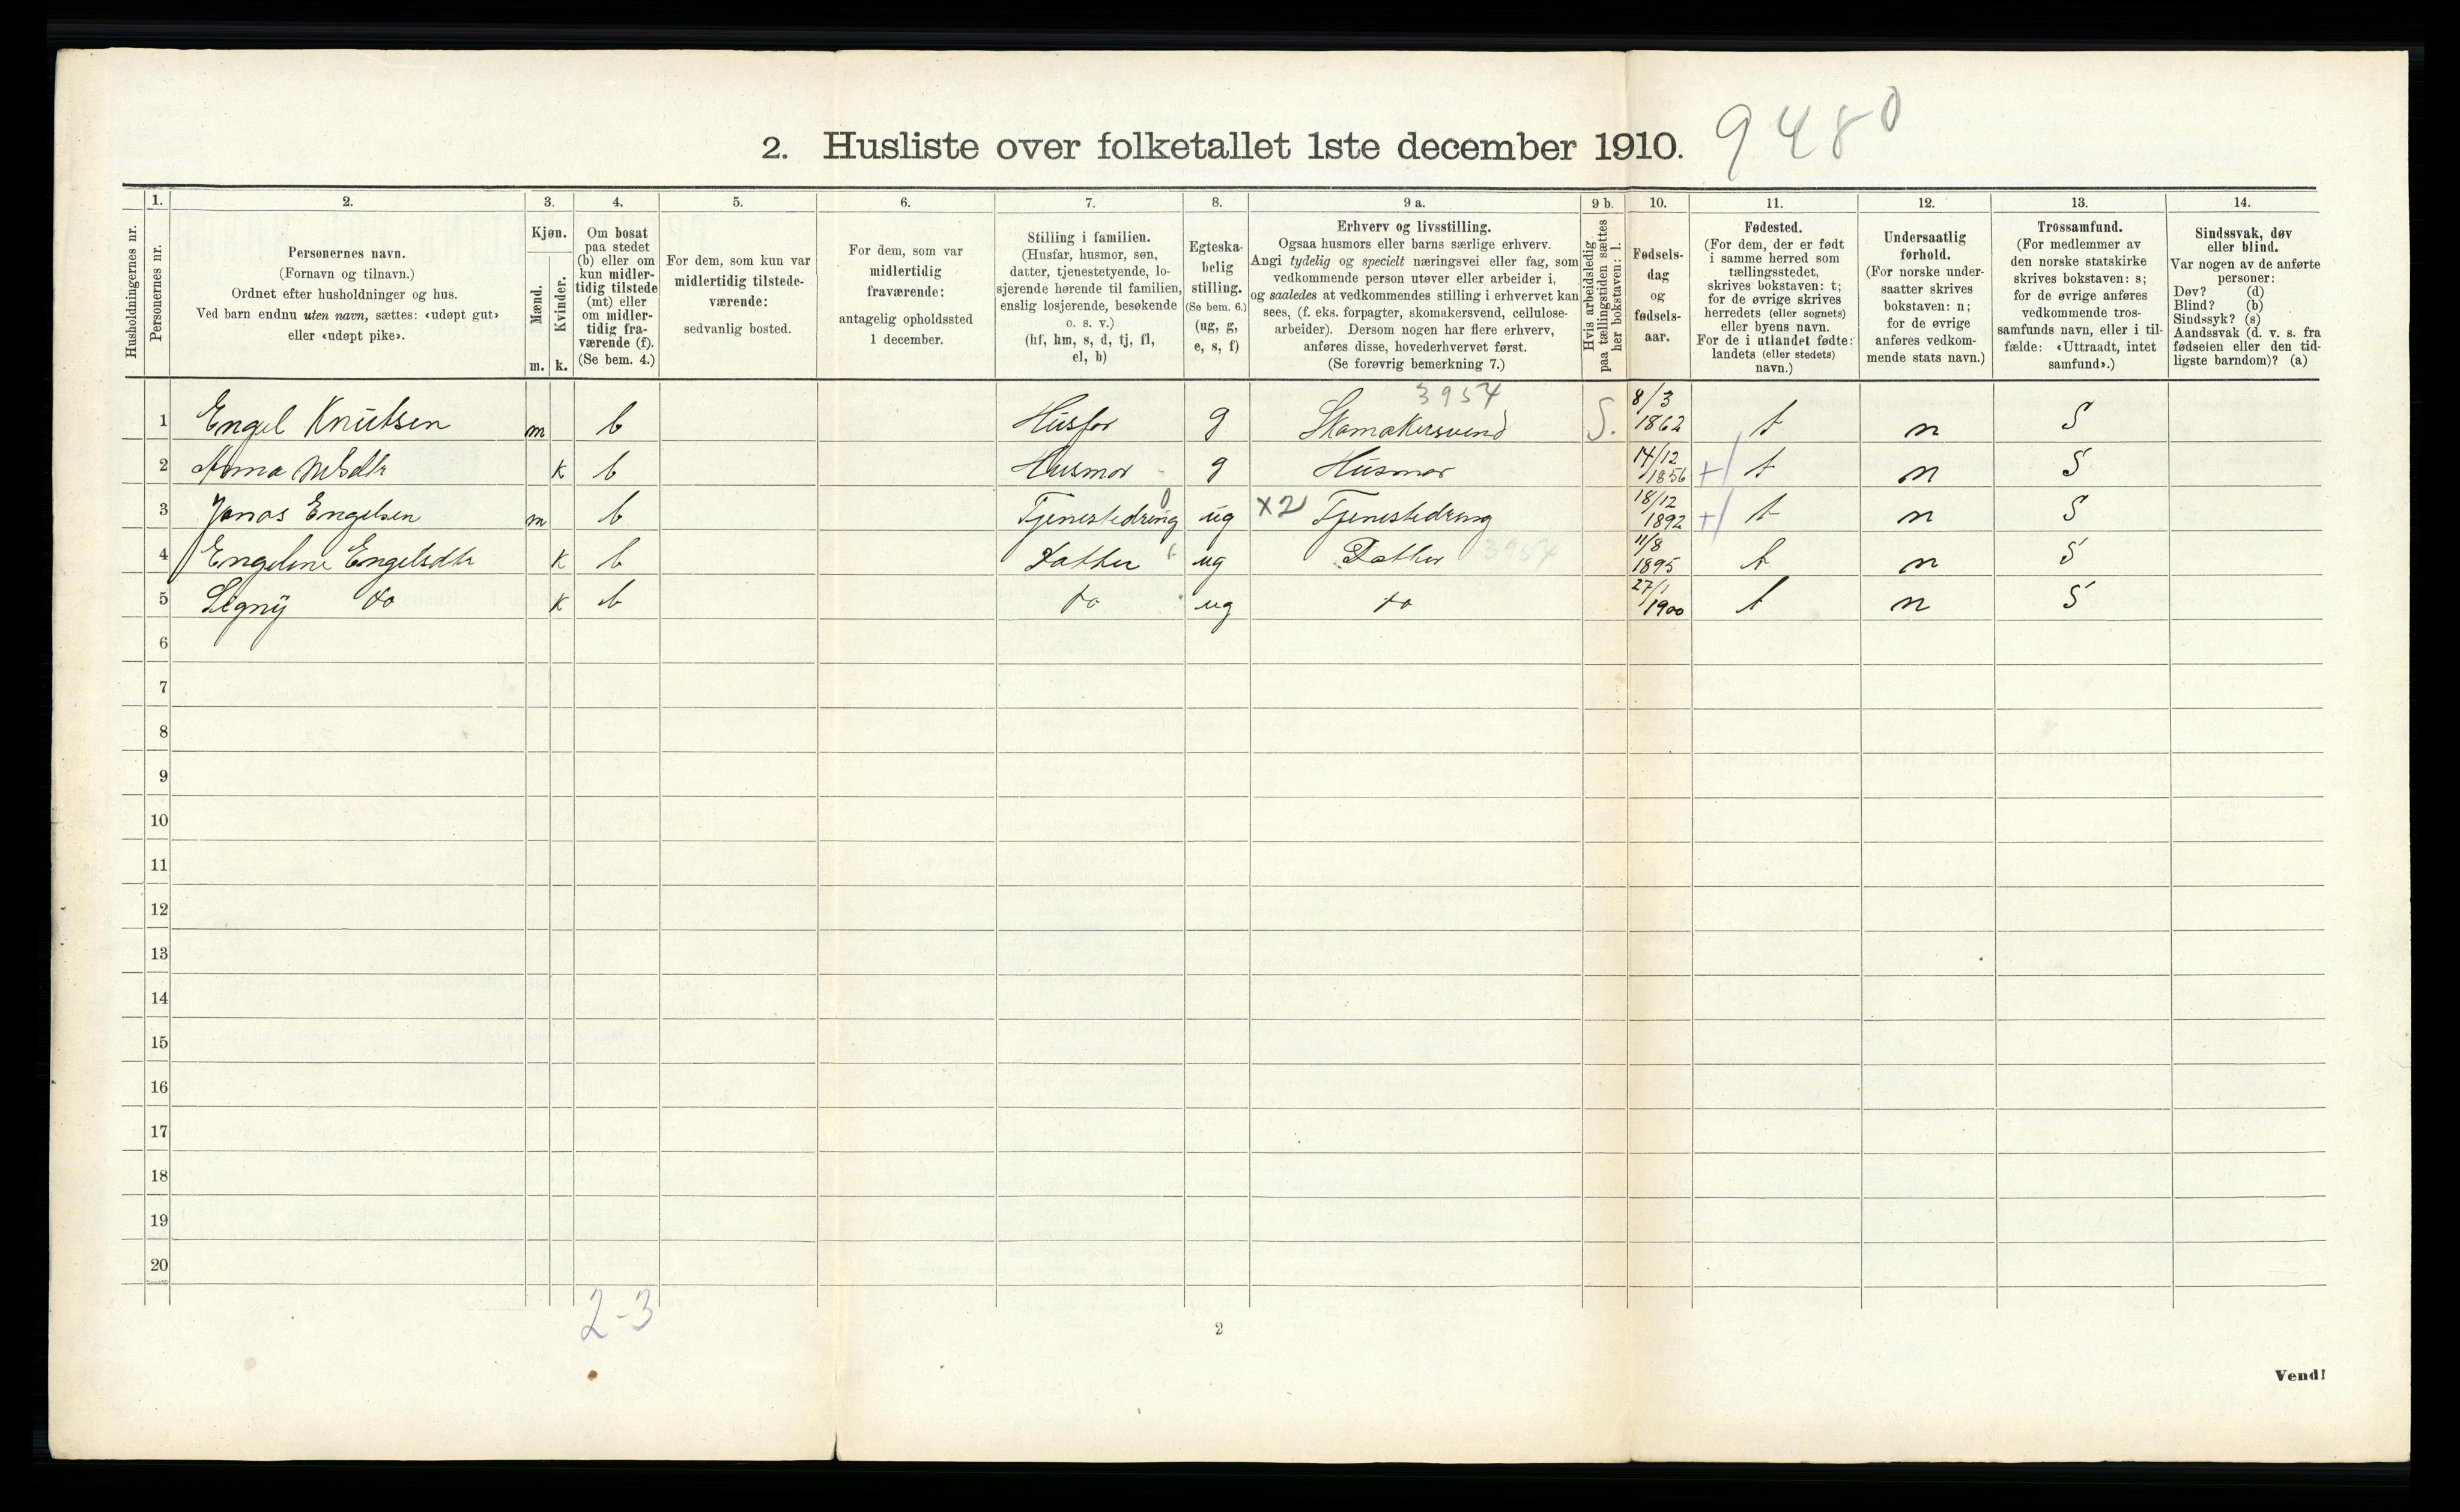 2. Husliste over folketallet 1ste december 1910. 9480
Husholdningernes nr.
1.
Personernes nr.
2.
Personernes navn.
(Fornavn og tilnavn.)
Ordnet efter husholdninger og hus.
Ved barn endnu uten navn, sættes: «udøpt gut»
eller «udøpt pike».
3.
Kjøn.
Mænd.
Kvinder.
m. k.
4.
Om bosat
paa stedet
(b) eller om
kun midler-
tidig tilstede
(mt) eller
om midler-
tidig fra-
værende (f).
(Se bem. 4.)
5.
For dem, som kun var
midlertidig tilstede-
værende:
sedvanlig bosted.
6.
For dem, som var
midlertidig
fraværende:
antagelig opholdssted
1 december.
7.
Stilling i familien.
(Husfar, husmor, søn,
datter, tjenestetyende, lo-
sjerende hørende til familien,
enslig losjerende, besøkende
o. s. v.)
(hf, hm, s, d, tj, fl,
el, b)
8.
Egteska-
belig
stilling.
(Se bem. 6.)
(ug, g,
e, s, f)
9 a.
Erhverv og livsstilling.
Ogsaa husmors eller barns særlige erhverv.
Angi tydelig og specielt næringsvei eller fag, som
vedkommende person utøver eller arbeider i,
og saaledes at vedkommendes stilling i erhvervet kan
sees, (f. eks. forpagter, skomakersvend, cellulose-
arbeider). Dersom nogen har flere erhverv,
anføres disse, hovederhvervet først.
(Se forøvrig bemerkning 7.)
9 b.
Hvis arbeidsledig
paa tællingstiden sættes
her bokstaven: l.
10.
Fødsels-
dag
og
fødsels-
aar.
11.
Fødested.
(For dem, der er født
i samme herred som
tællingsstedet,
skrives bokstaven: t;
for de øvrige skrives
herredets (eller sognets)
eller byens navn.
For de i utlandet fødte:
landets (eller stedets)
navn.)
12.
Undersaatlig
forhold.
(For norske under-
saatter skrives
bokstaven: n;
for de øvrige
anføres vedkom-
mende stats navn.)
13.
Trossamfund.
(For medlemmer av
den norske statskirke
skrives bokstaven: s;
for de øvrige anføres
vedkommende tros-
samfunds navn, eller i til-
fælde: «Uttraadt, intet
samfund».)
14.
Sindssvak, døv
eller blind.
Var nogen av de anførte
personer:
Døv? (d)
Blind? (b)
Sindssyk? (s)
Aandssvak (d. v. s. fra
fødselen eller den tid-
ligste barndom)? (a)
3957
1 Engel Knutsen m b Husfar g Skomakersvend S. 8/3 1862 t n S
2 Anna k b Husmor g Husmor 14/12 1856 t n S
3 Jonas Engelsen m b Tjenestedreng ug x2 Tjenestedreng 18/12 1892 t n S
4 Engeline Engelsdtr k b Datter ug Datter 3957 11/8 1895 t n S
5 Signy do k b do ug do 27/1 1900 t n S
6
7
8
9
10
11
12
13
14
15
16
17
18
19
20
2-3
2
Vend!